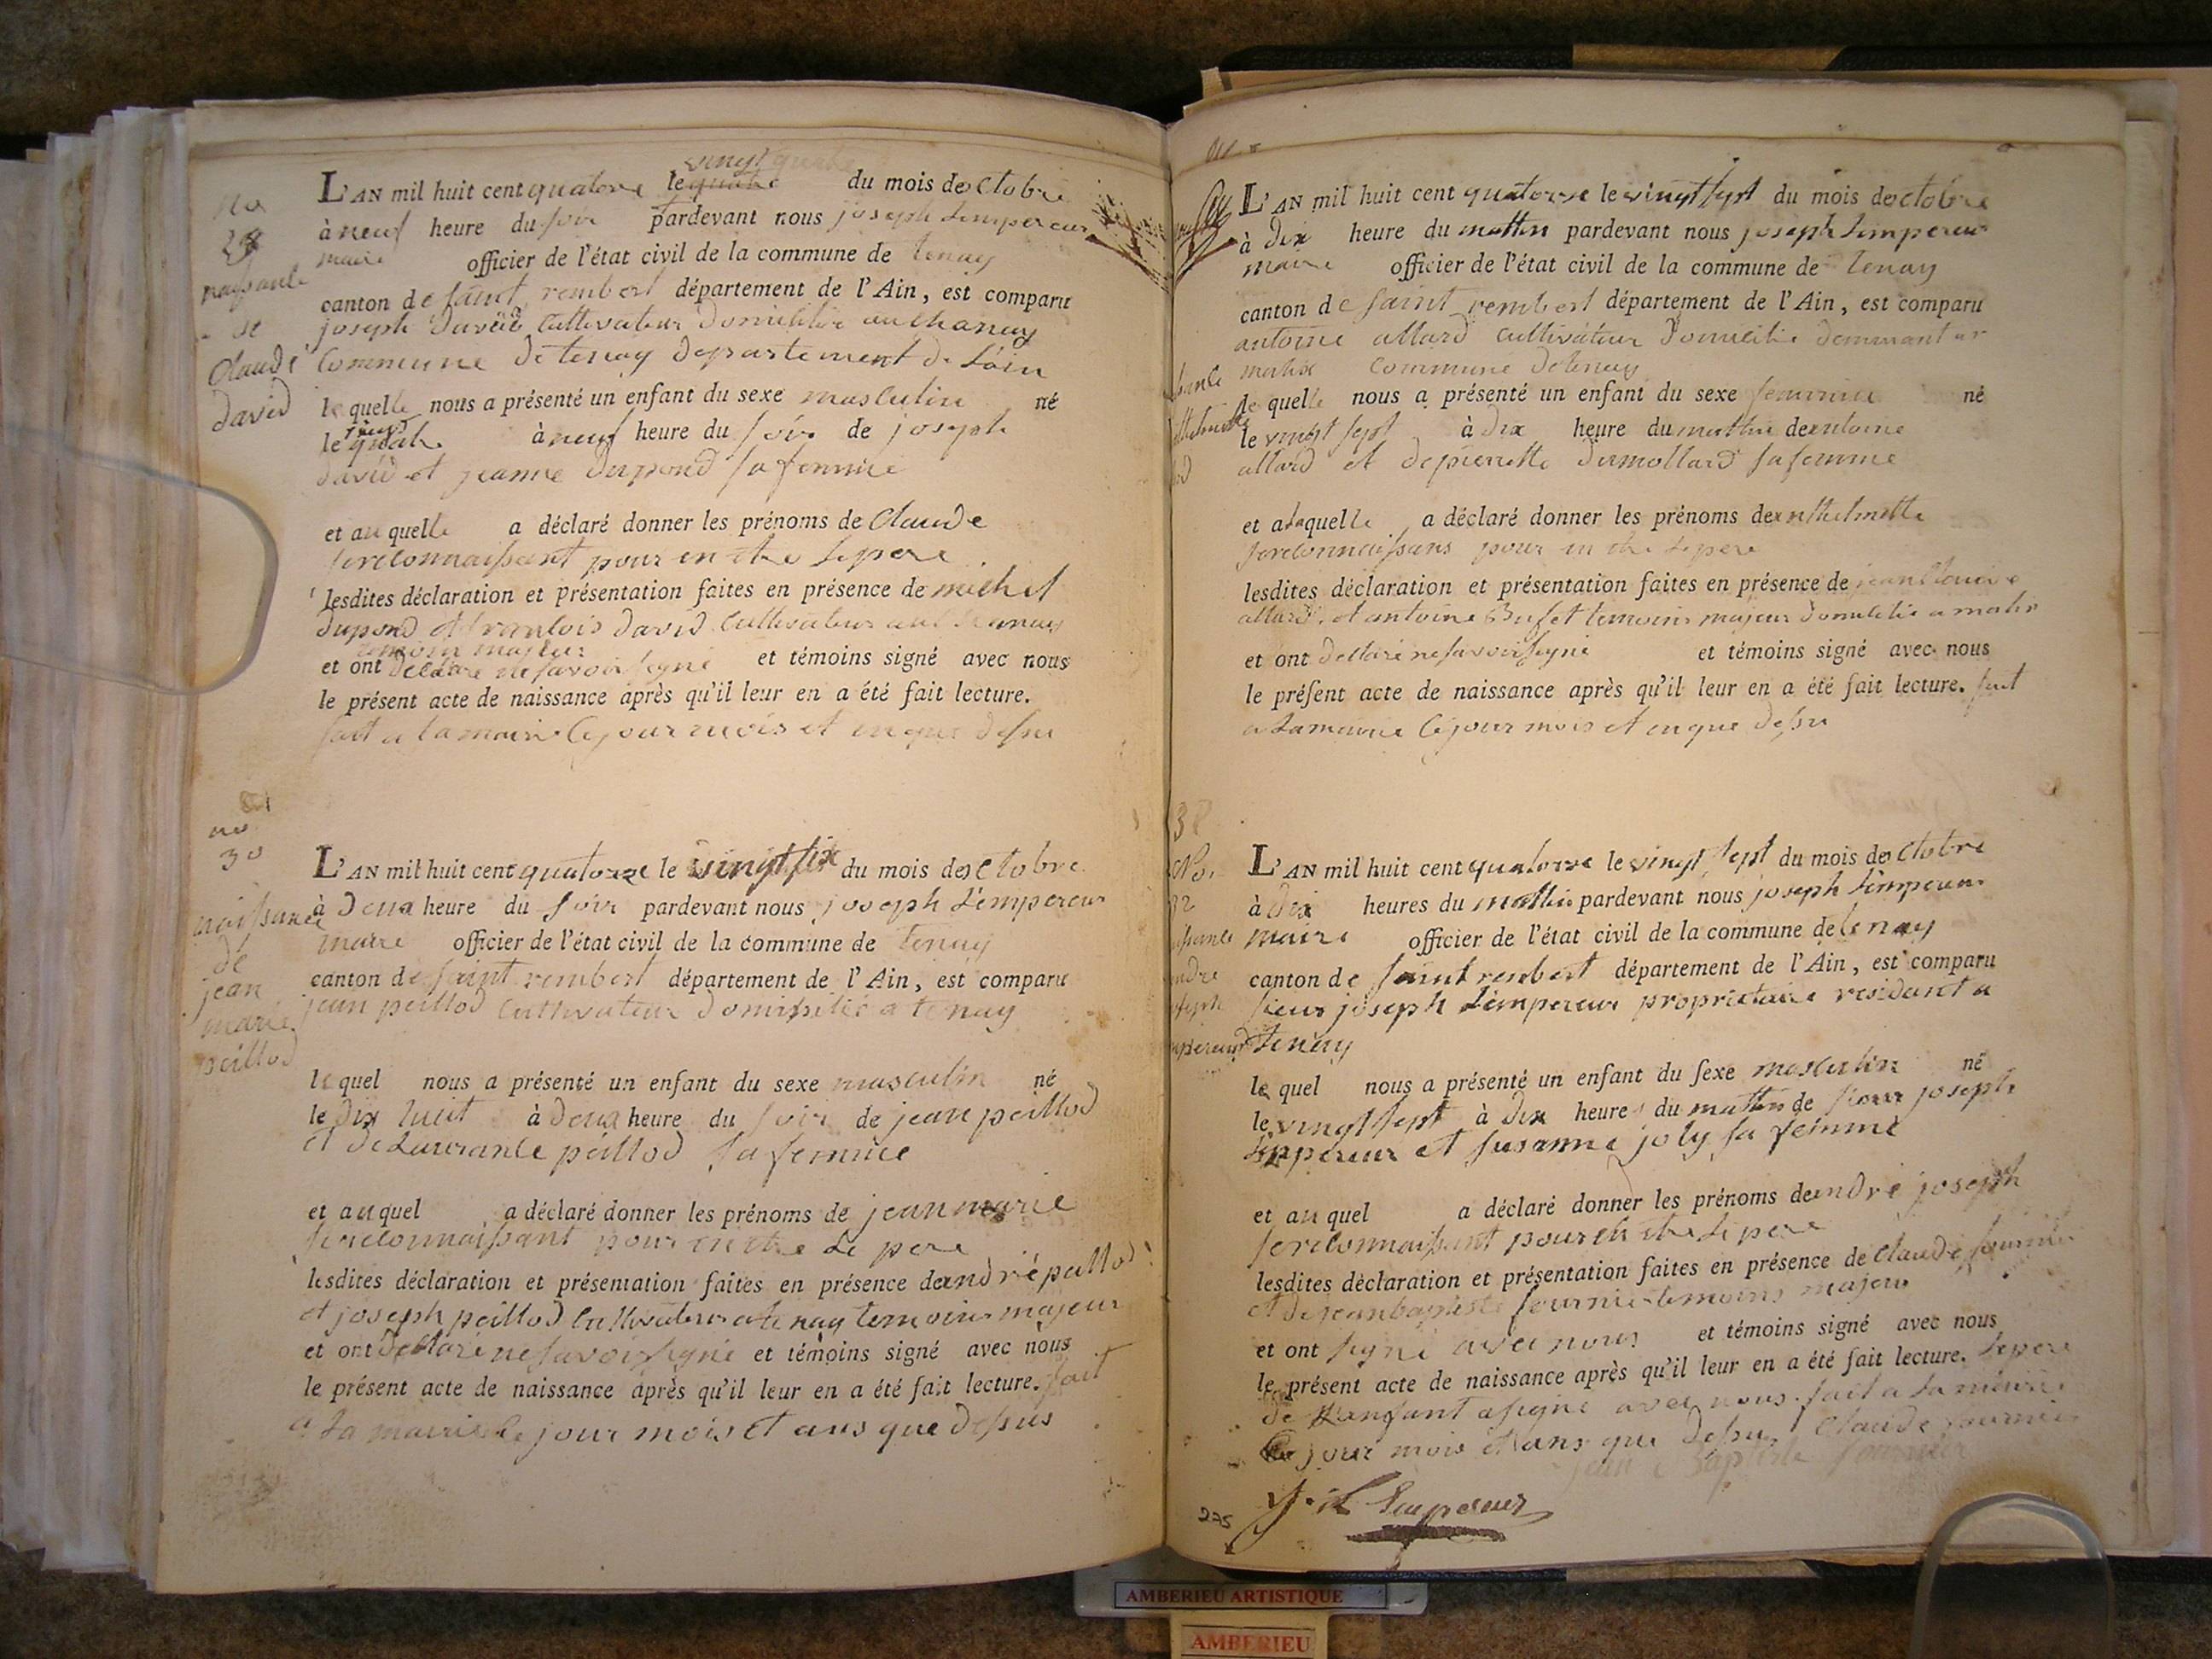 no
29
naissance
de
Claude
david
vingt quatre
L'AN mil huit cent quatorze le quatre du mois de octobre
à neuf heure du soir pardevant nous joseph Lempereur
maire officier de l'état civil de la commune de tenay
canton de saint rembert département de l'Ain, est comparu
joseph david cultivateur domicilié au Chanay
Commune de tenay departement de L'ain
le quelle nous a présenté un enfant du sexe masculin né
le à neuf heure du soir de joseph
david et jeanne dupond sa femme
et au quelle a déclaré donner les prénoms de Claude
se reconnaissant pour en etre Le pere
lesdites déclaration et présentation faites en présence de michel
dupond et francois david Cultivateur au Chanay
temoin majeur
et ont declare ne savoir signé et témoins signé avec nous
le présent acte de naissance après qu'il leur en a été fait lecture.
fait a la mairie Ce jour mois et an que dessu
no
30
naissance
de
jean
marie
peillod
L'AN mil huit cent quatorze le vingt six du mois de octobre
à deux heure du soir pardevant nous joseph Lempereur
maire officier de l'état civil de la commune de tenay
canton de saint rembert département de l'Ain, est comparu
jean peillod cultivateur domicilié a tenay
le quel nous a présenté un enfant du sexe masculin né
le dix huit à deux heure du soir de jean peillod
et de Laurance peillod sa femme
et au quel a déclaré donner les prénoms de jean marie
se reconnaissant pour en etre Le pere
lesdites déclaration et présentation faites en présence de andré peillod
et joseph peillod Cultivateur a tenay temoins majeur
et ont declaré ne savoir signé et témoins signé avec nous
le présent acte de naissance après qu'il leur en a été fait lecture. fait
a La mairie le jour mois et ans que dessus
L'AN mil huit cent quatorze le vingt sept du mois de octobre
à dix heure du mattin pardevant nous joseph Lempereur
maire officier de l'état civil de la commune de tenay
canton de saint rembert département de l'Ain, est comparu
antoine allard cultivateur domicilié demeurant a
malix commune de tenay
le quelle nous a présenté un enfant du sexe feminin né
le vingt sept à dix heure du mattin de antoine
allard et de pierrette dumollard sa femme
et a la quelle a déclaré donner les prénoms de anthelmette
se reconnaissans pour en etre Le pere
lesdites déclaration et présentation faites en présence de jean
allard et antoine temoins majeur domicilié a malix
et ont declaré ne savoir signé et témoins signé avec nous
le présent acte de naissance après qu'il leur en a été fait lecture. fait
a La mairie Ce jour mois et an que dessu
No.
32
L'AN mil huit cent quatorze le vingt sept du mois de octobre
à dix heures du mattin pardevant nous joseph Lempereur
maire officier de l'état civil de la commune de tenay
canton de saint rembert département de l'Ain, est comparu
sieur joseph Lempereur proprietaire residant a
tenay
le quel nous a présenté un enfant du sexe masculin né
le vingt sept à dix heures du mattin de sieur joseph
Lempereur et susanne joly sa femme
et au quel a déclaré donner les prénoms de andré joseph
se reconnaissant pour en etre Le pere
lesdites déclaration et présentation faites en présence de Claude fournier
et de jean baptiste fournier temoins majeur
et ont signé avec nous et témoins signé avec nous
le présent acte de naissance après qu'il leur en a été fait lecture. Le pere
de L'enfant a signé avec nous. fait a La mairie
Ce jour mois et ans que dessu Claude fournier
jean Baptiste fournier
J. Lempereur
275
AMBERIEU ARTISTIQUE
AMBERIEU